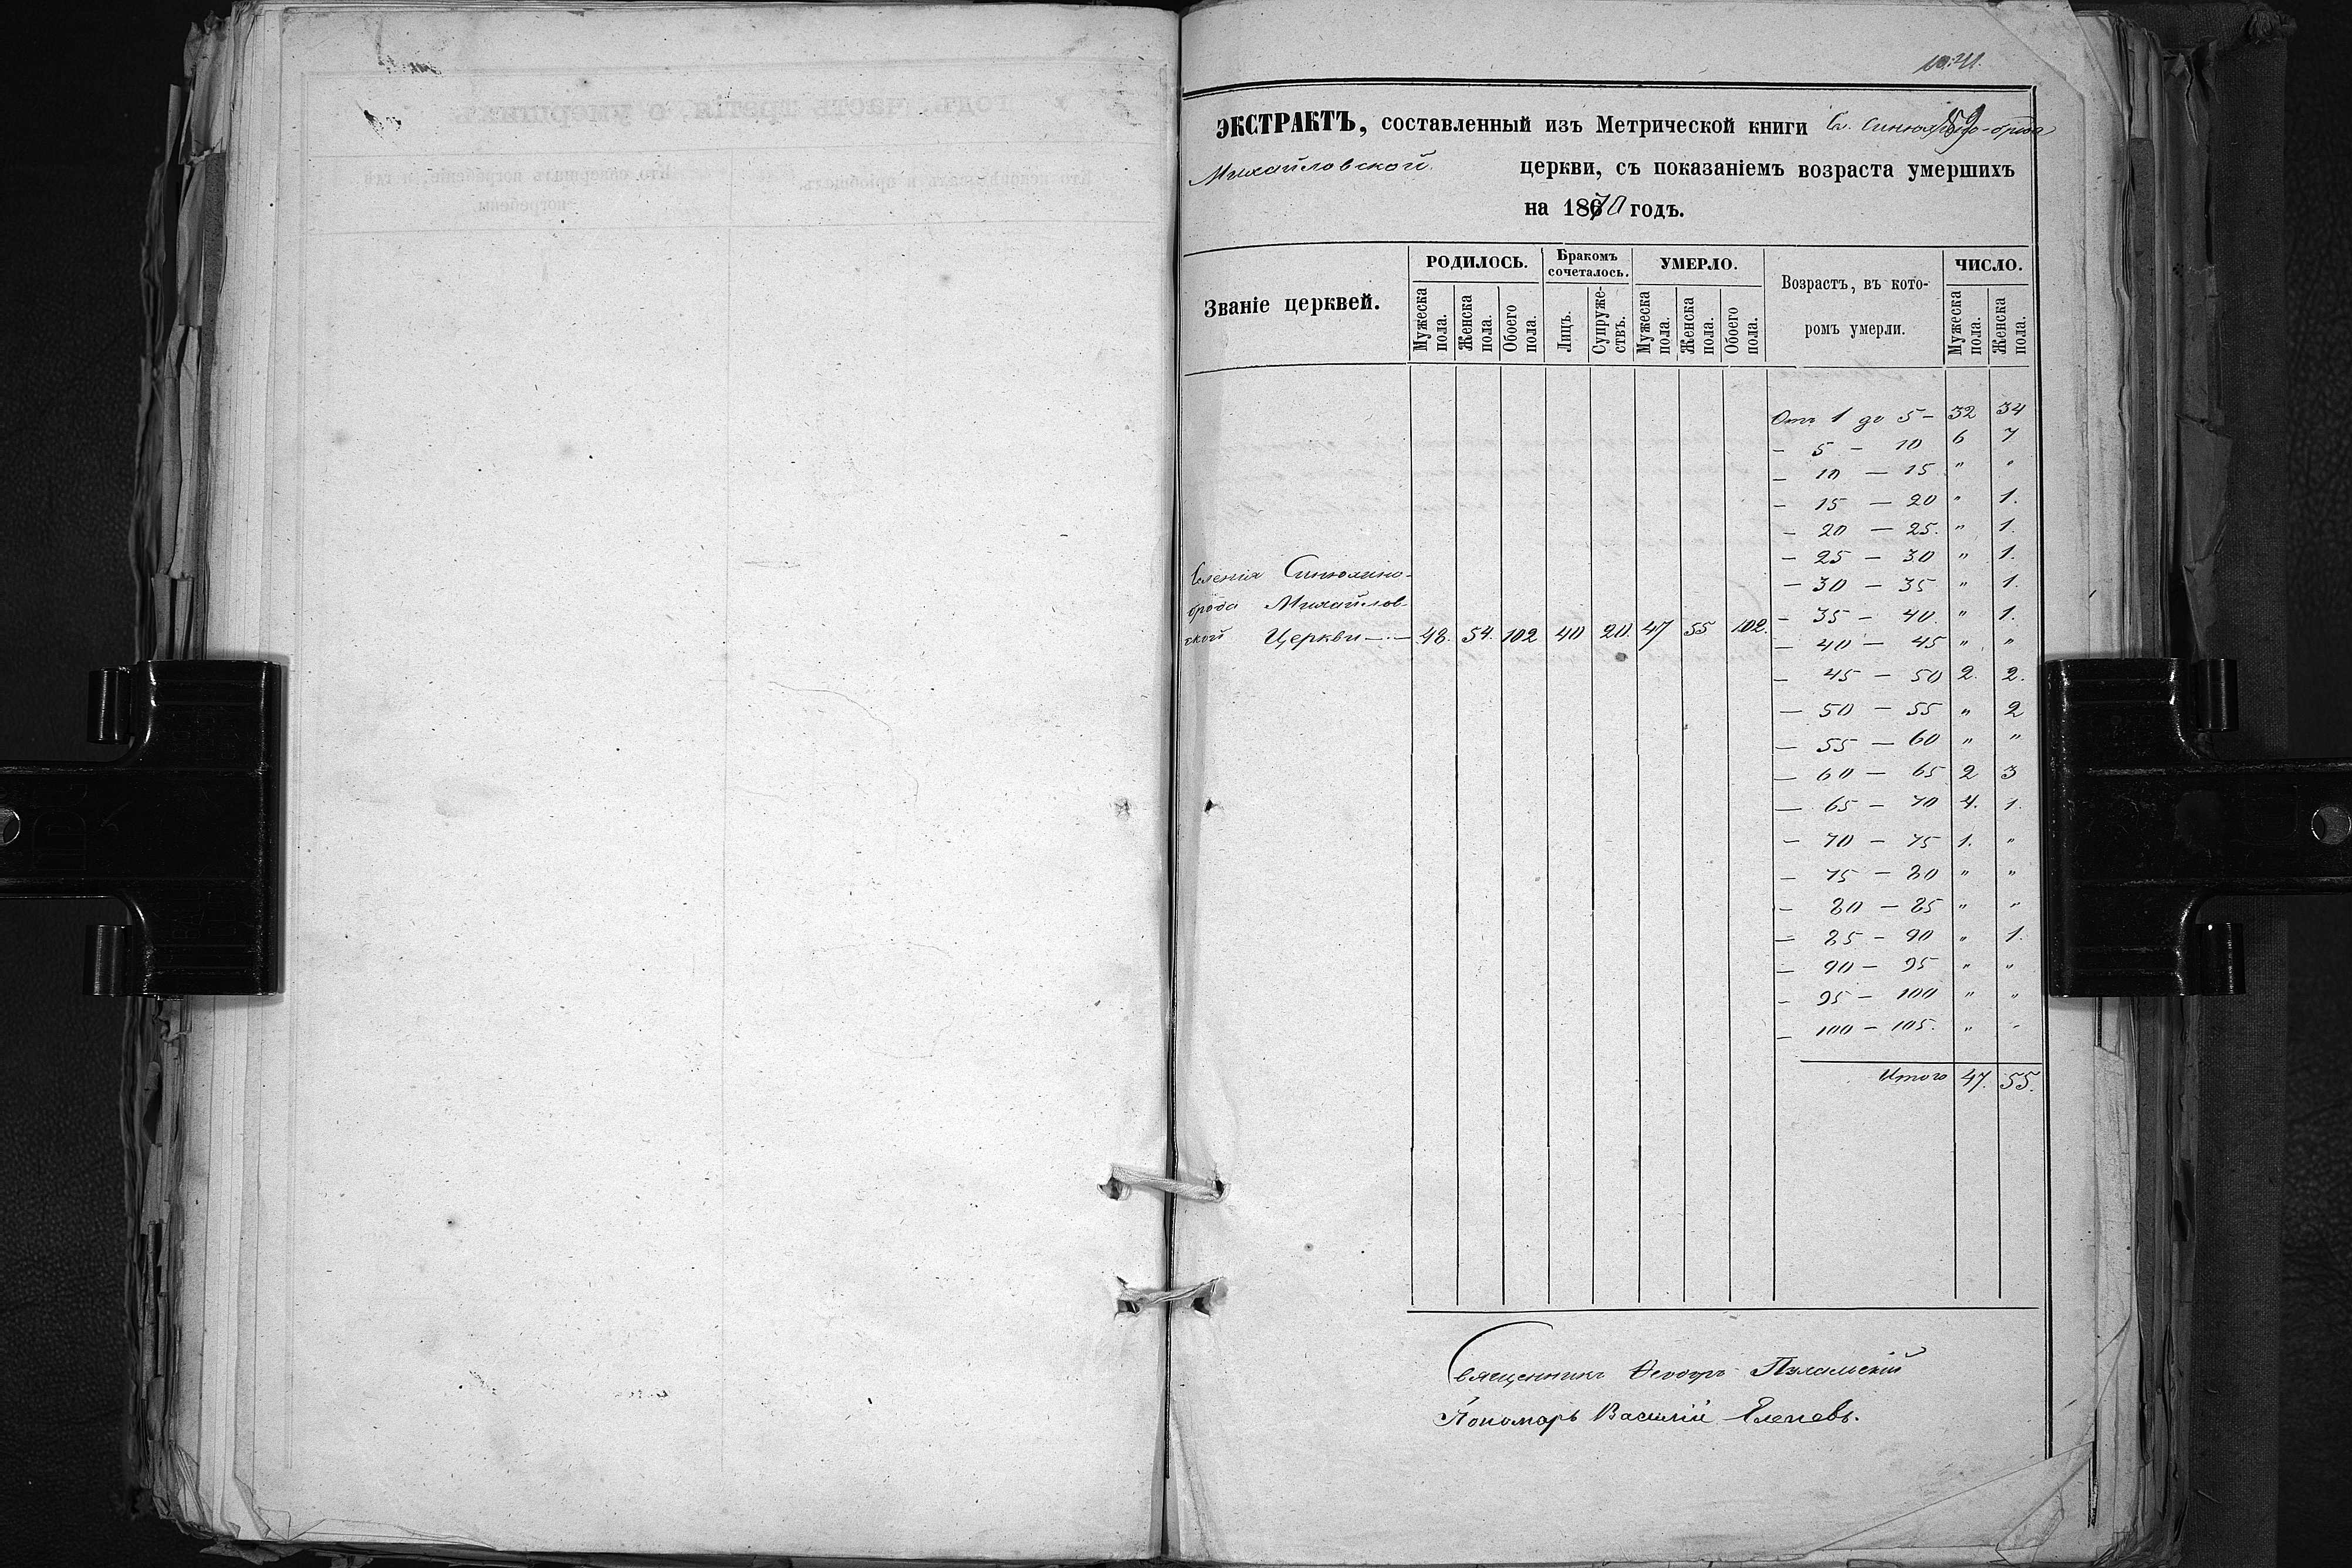 ЭКСТРАКТЪ, составленный изъ Метрической книги Ск. Синюхино-брода
Михайловской церкви, съ показаніемъ возраста умершихъ
на 1870 годъ.
Званіе церквей.
РОДИЛОСЬ.
Мужеска пола.
Женска пола.
Обоего пола.
Бракомъ сочеталось.
Лицъ.
Супружествъ.
УМЕРЛО.
Мужеска пола.
Женска пола.
Обоего пола.
Возрастъ, въ кото-
ромъ умерли.
ЧИСЛО.
Мужеска пола.
Женска пола.
Селенія Синюхино-
брода Михайлов-
ской Церкви — 48. 54. 102 40 20. 47 55 102.
Отъ 1 до 5 - 32 34
- 5 - 10 6 7
- 10 - 15 " "
- 15 - 20 " 1.
- 20 - 25. " 1.
- 25 - 30 " 1.
- 30 - 35 " 1.
- 35 - 40. " 1.
- 40 - 45 " "
- 45 - 50 2. 2.
- 50 - 55 " 2
- 55 - 60 " "
- 60 - 65 2 3
- 65 - 70 4. 1.
- 70 - 75 1. "
- 75 - 80 " "
- 80 - 85 " "
- 85 - 90 " 1.
- 90 - 95 " "
- 95 - 100 " "
- 100 - 105. " "
Итого 47. 55.
Священникъ Ѳеодоръ
Пономарь Василій